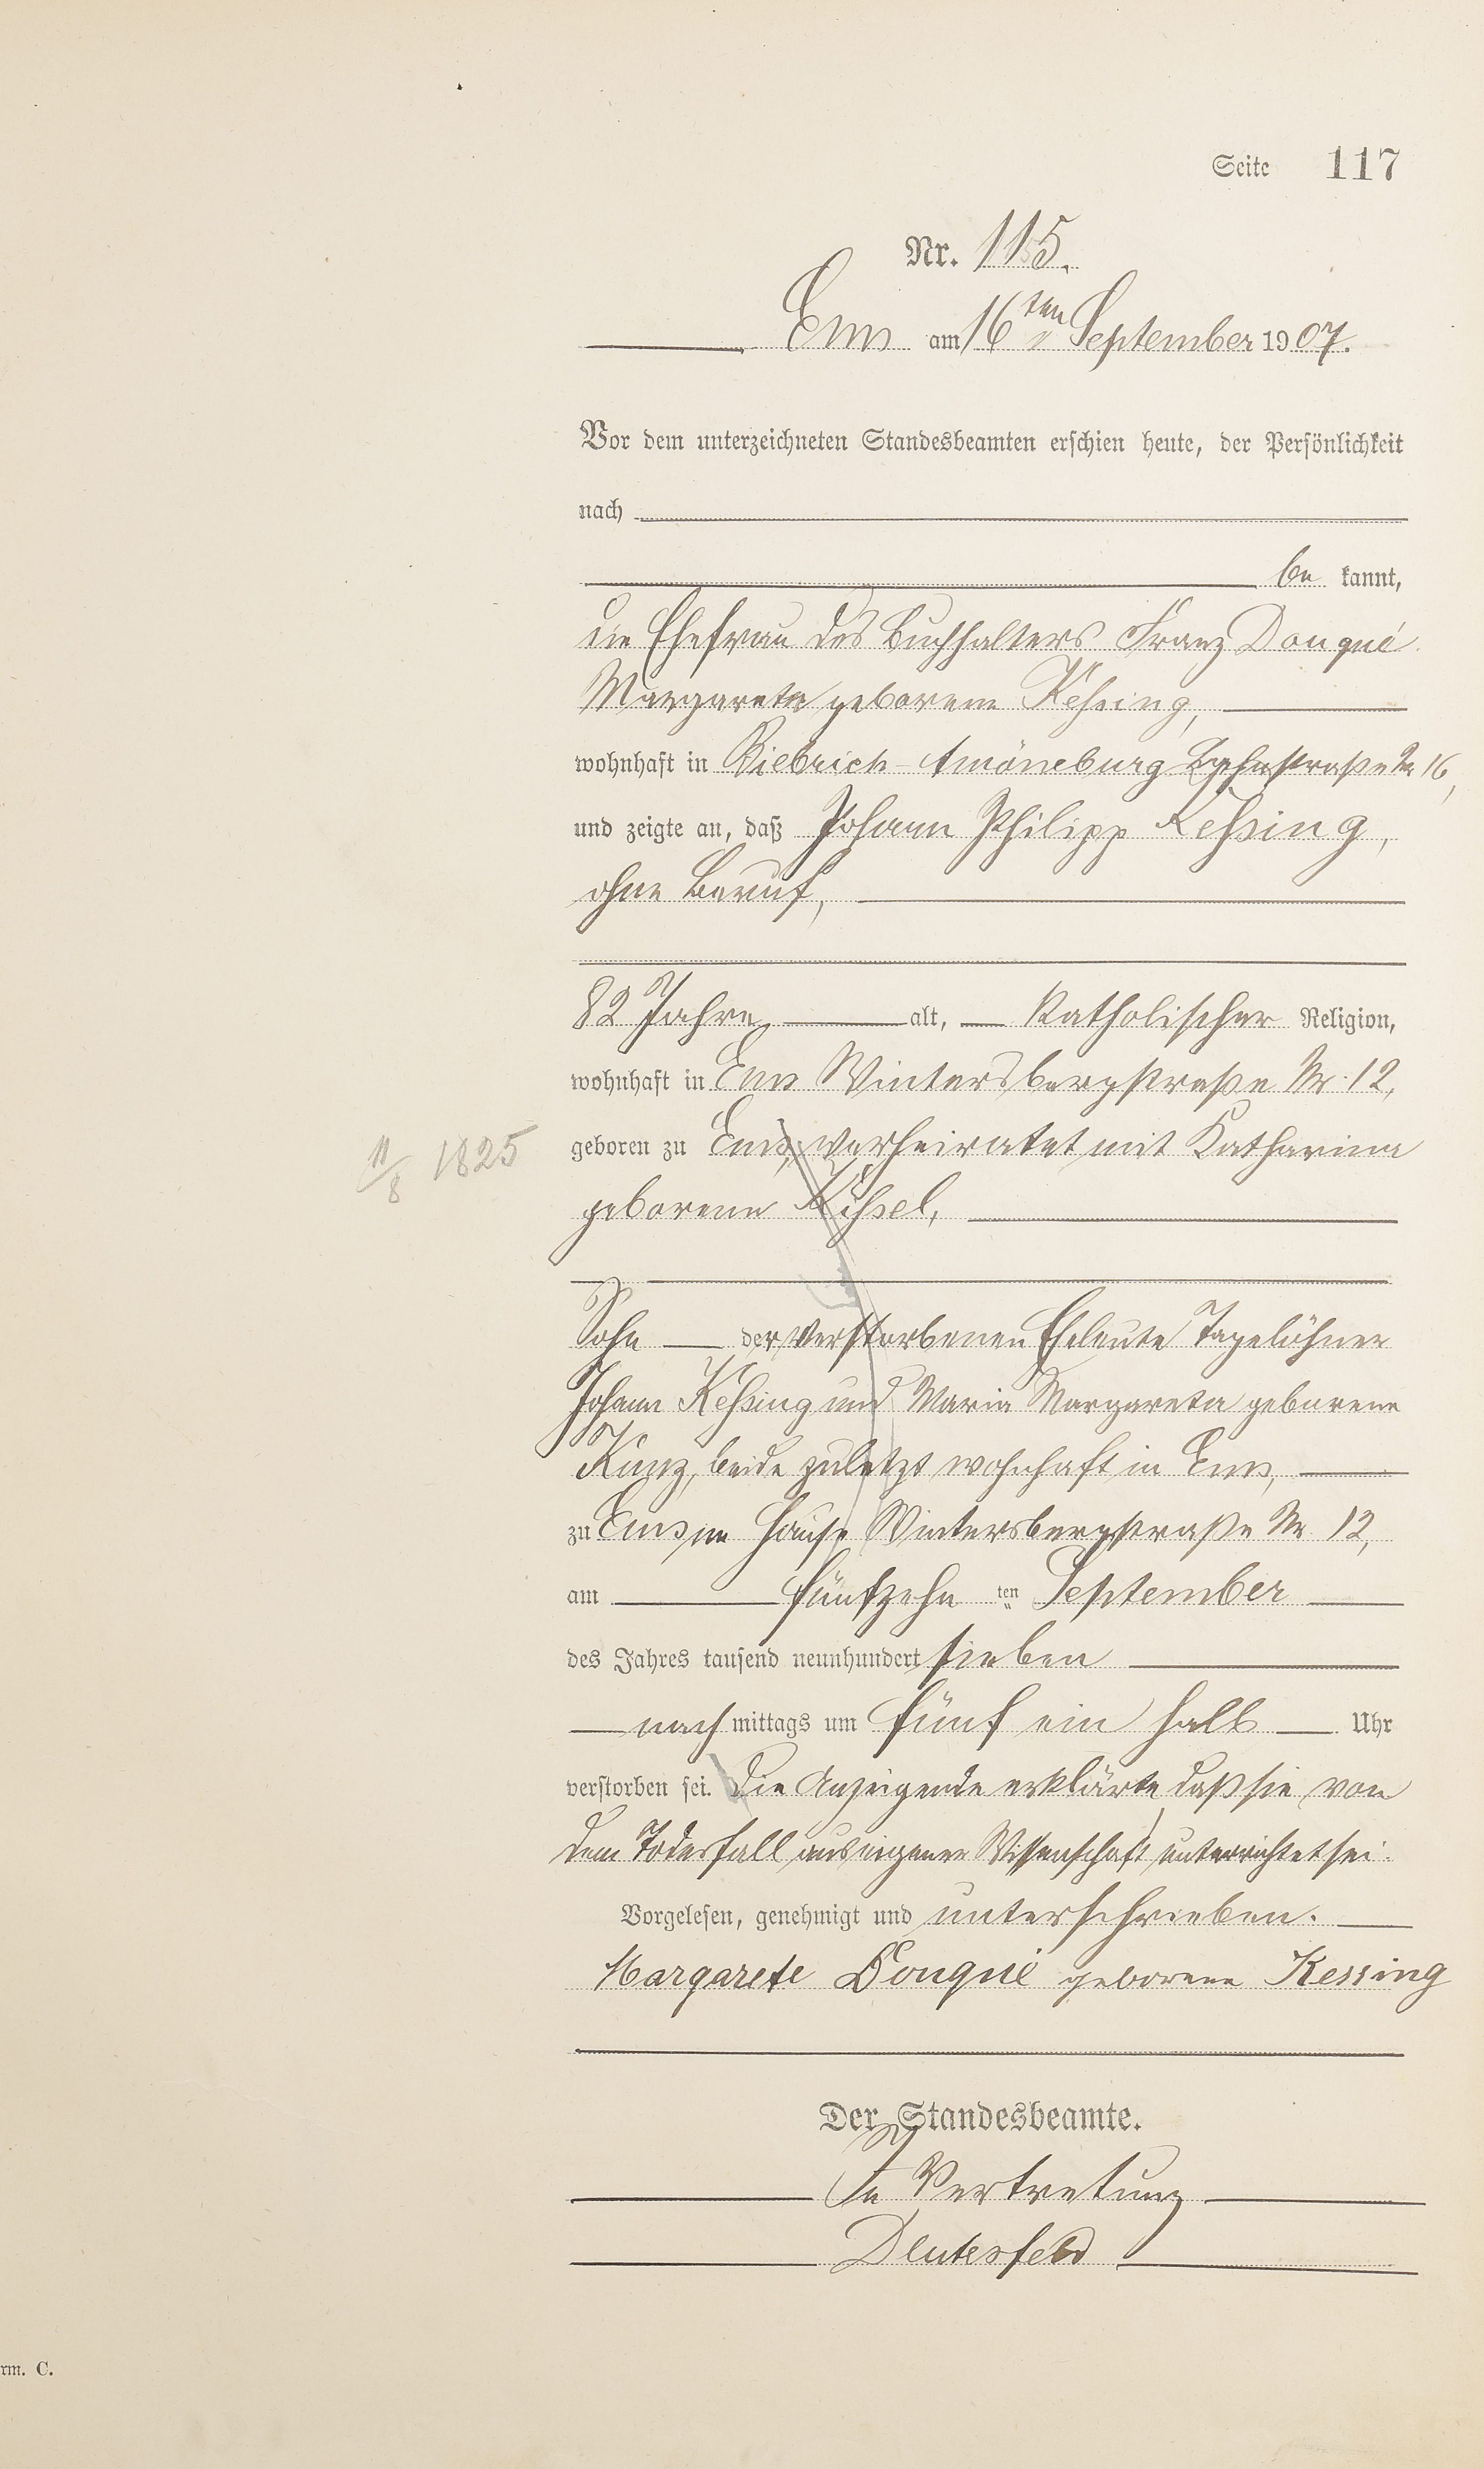 Seite 117
Nr. 115.
Ems am 16ten September 1907.
Vor dem unterzeichneten Standesbeamten erschien heute, der Persönlichkeit
nach
be kannt,
die Ehefrau des Buchhalters Franz Donqué
Margareta geborene Keßing,
wohnhaft in Biebrich-Amöneburg Nr 16,
und zeigte an, daß Johann Philipp Keßing,
ohne Beruf,
82 Jahre alt, Katholischer Religion,
wohnhaft in Ems Wintersbergstraße Nr. 12,
geboren zu Ems, verheiratet mit Katharina
11/8 1825
geborene Kißel,
Sohn der verstorbenen Eheleute Tagelöhner
Johann Keßing und Maria Margareta geborene
Kunz, beide zuletzt wohnhaft in Ems,
zu Ems im Hause Wintersbergstraße Nr. 12,
am fünfzehn ten September
des Jahres tausend neunhundert sieben
nach mittags um fünf ein halb Uhr
verstorben sei. Die Anzeigende erklärte, daß sie von
dem Todesfall aus eigener Wissenschaft unterrichtet sei.
Vorgelesen, genehmigt und unterschrieben.
Margarete Donqué geborene Kessing
Der Standesbeamte.
In Vertretung
rm. C.